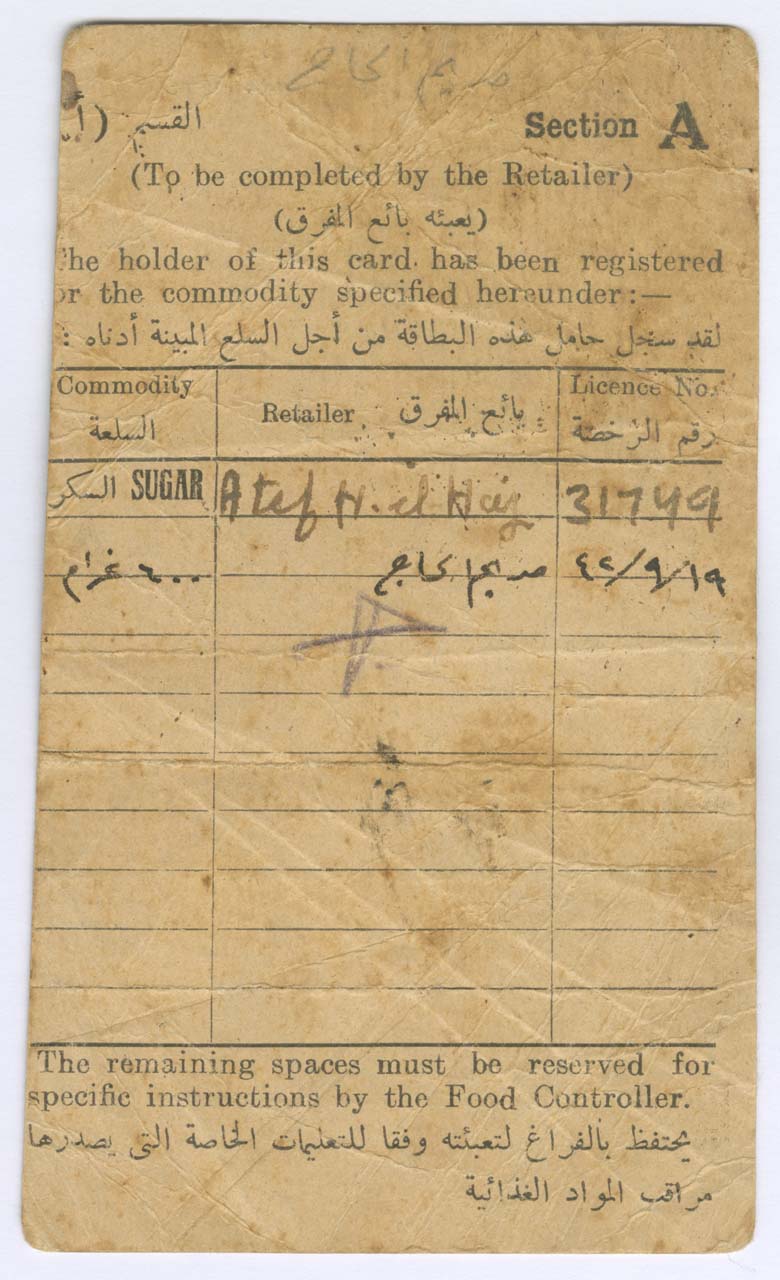 مريم الحاج
Section A القسم (أ
(To be completed by the Retailer)
(يعبئه بائع المفرق)
he holder of this card has been registered
or the commodity specified hereunder:—
لقد سجل حامل هذه البطاقة من أجل السلع المبينة أدناه :
Commodity السلعة Retailer بائع المفرق Licence No. رقم الرخصة
السكر SUGAR Atef H. el Haj 31749
٦٠٠ غرام مريم الحاج ٤٢/٩/١٩
The remaining spaces must be reserved for
specific instructions by the Food Controller.
يحتفظ بالفراغ لتعبئته وفقا للتعليمات الخاصة التي يصدرها
مراقب المواد الغذائية